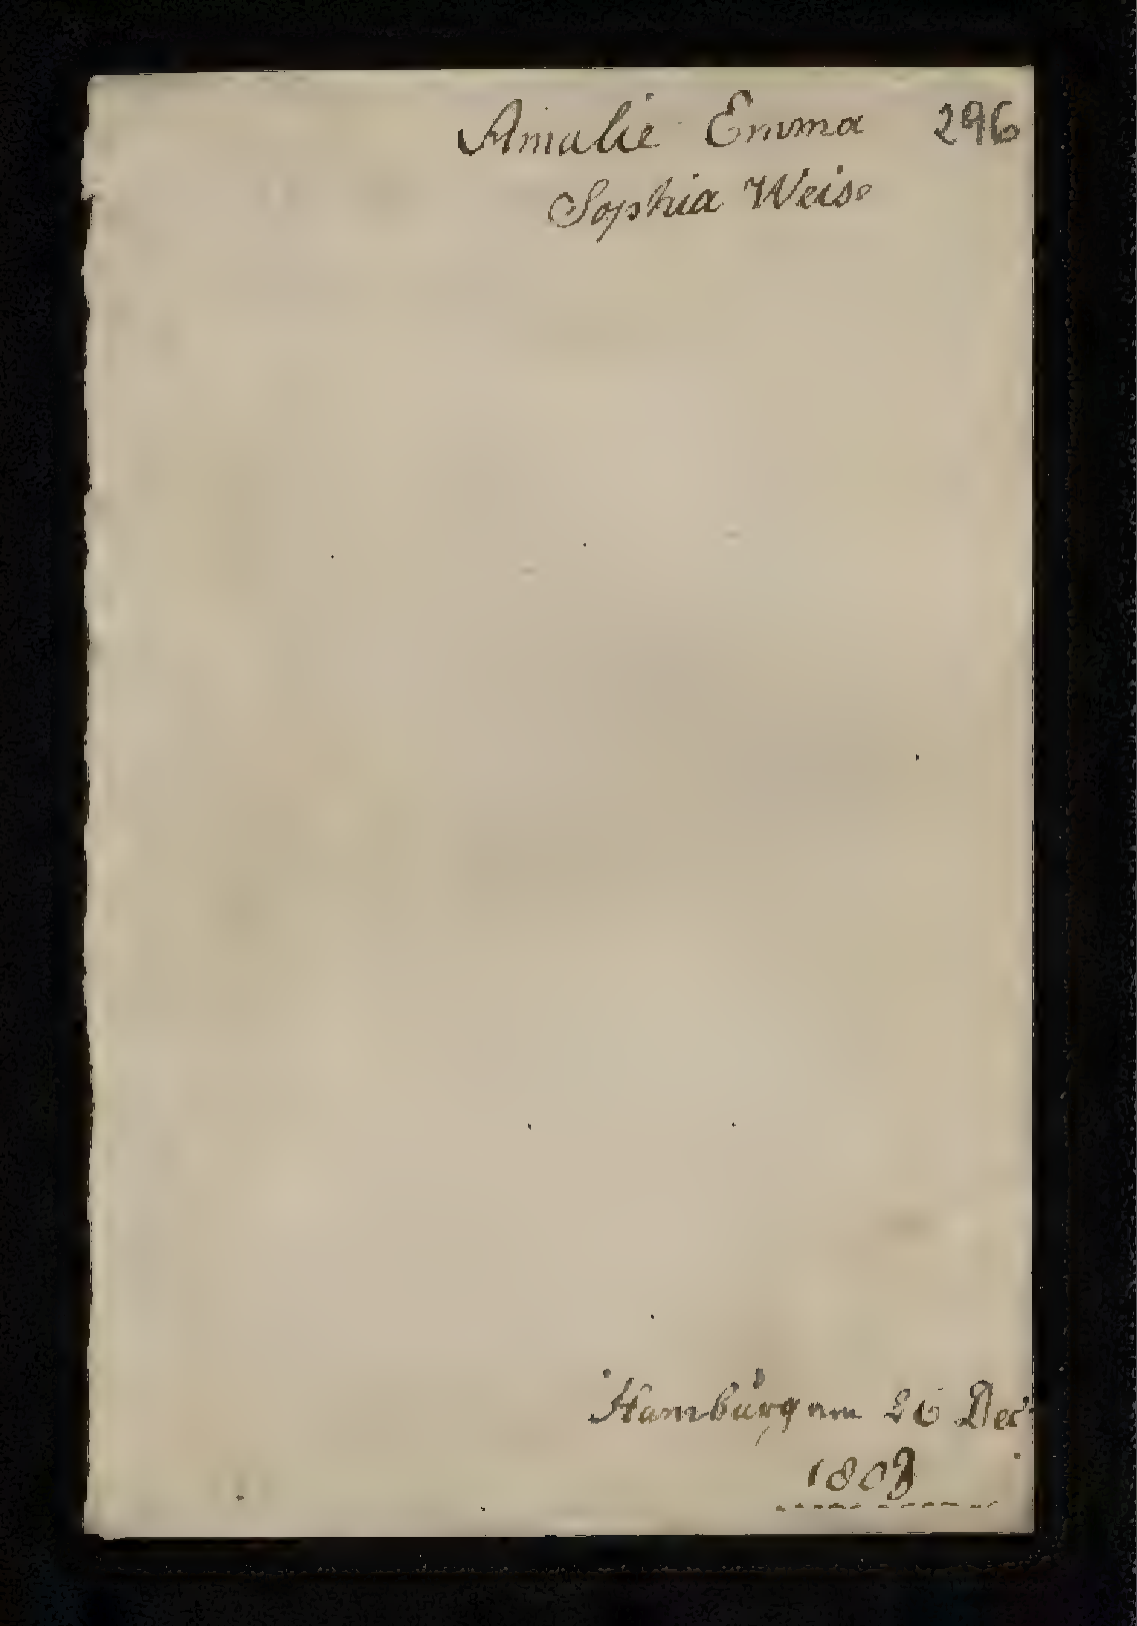 Amalie Emma 296
Sophia Weise
Hamburg am 26 Dec
1808